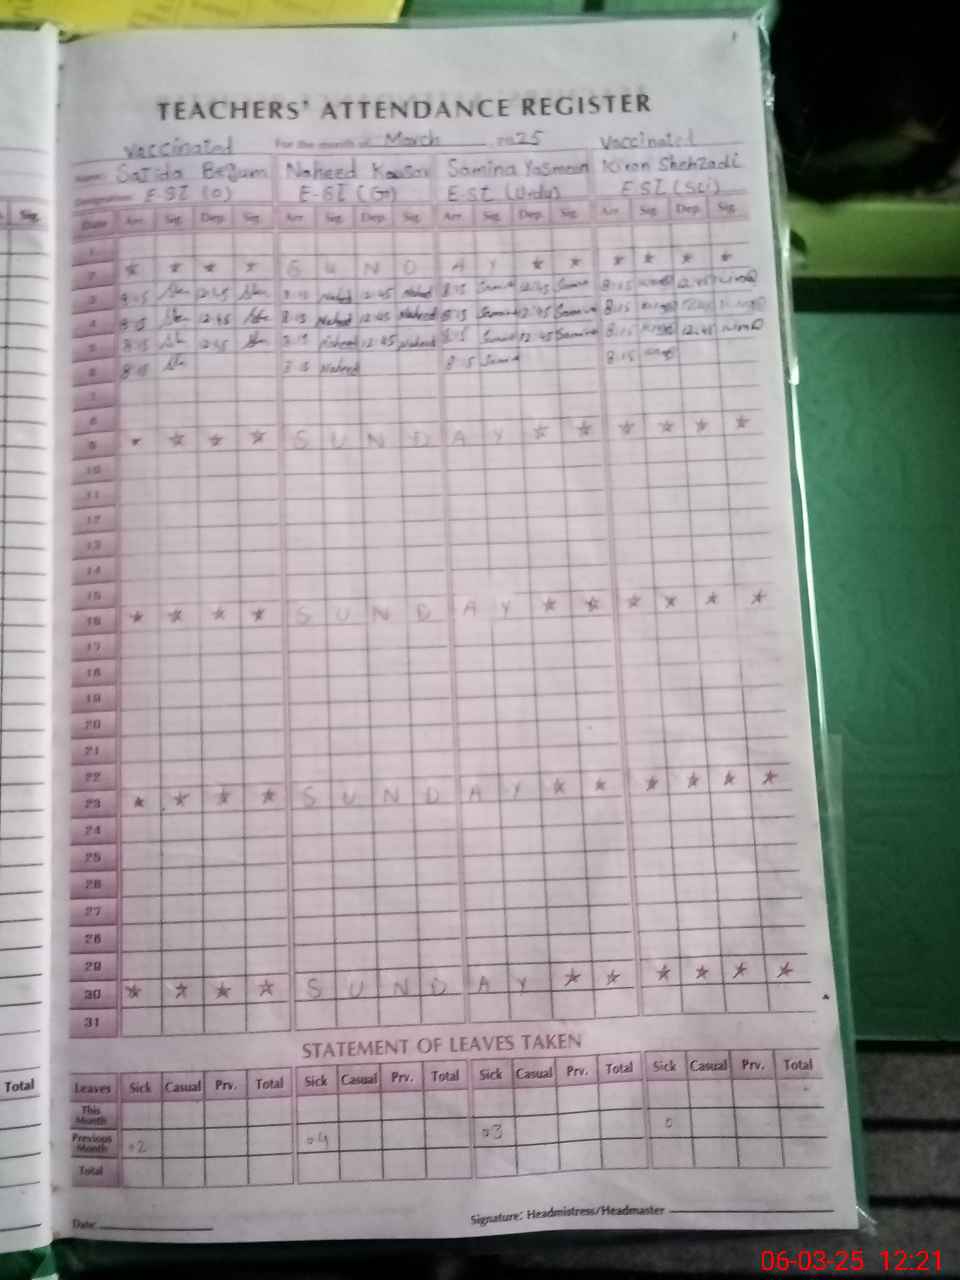 TEACHERS' ATTENDANCE REGISTER
Vaccinated For the month of March 2025 Vaccinated
Name: Sajida Begum Naheed Kausar Samina Yasmeen Kiran Shehzadi
Designation: E-ST (O) E-ST (G) E-ST (Urdu) E.ST (Sci)
Sig.
Date Arr. Sig. Dep. Sig. Arr. Sig. Dep. Sig. Arr. Sig. Dep. Sig. Arr. Sig. Dep. Sig.
1
2 * * * * S U N D A Y * * * * * *
3 8:15 12:45 8:15 Naheed 12:45 Naheed 8:15 Samina 12:45 Samina 8:15 12:45
4 8:15 12:45 8:15 Naheed 12:45 Naheed 8:15 Samina 12:45 Samina 8:15 12:45
5 8:15 12:45 8:15 Naheed 12:45 Naheed 8:15 Samina 12:45 Samina 8:15 12:45
6 8:15 8:15 Naheed 8:15 Samina 8:15
7
8
9 * * * * S U N D A Y * * * * * *
10
11
12
13
14
15
16 * * * * S U N D A Y * * * * * *
17
18
19
20
21
22
23 * * * * S U N D A Y * * * * * *
24
25
26
27
28
29
30 * * * * S U N D A Y * * * * * *
31
STATEMENT OF LEAVES TAKEN
Total
Leaves Sick Casual Prv. Total Sick Casual Prv. Total Sick Casual Prv. Total Sick Casual Prv. Total
This Month
Previous Month 02 04 03 0
Total
Date: Signature: Headmistress/Headmaster
06-03-25 12:21